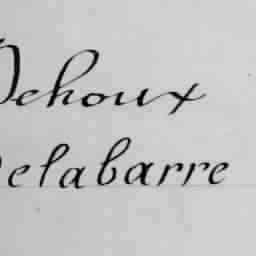 Dehoux
Delabarre